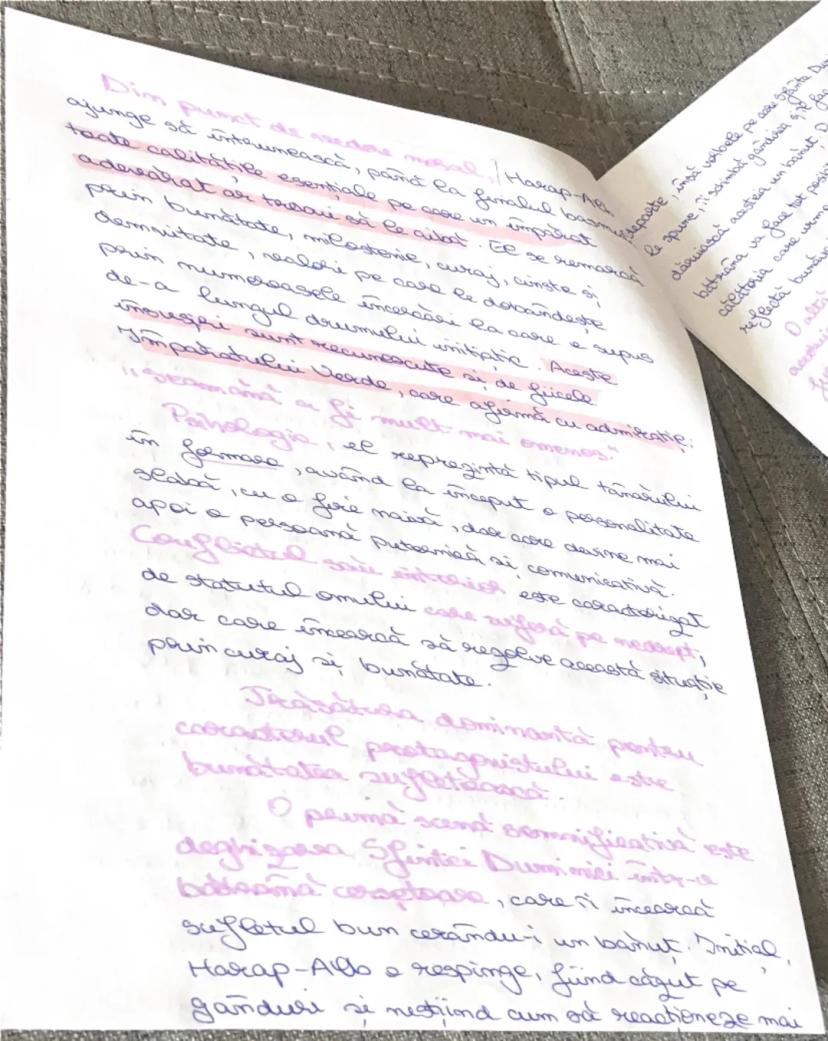 Din punct de vedere moral, Harap-Alb
ajunge să întrunească, până la finalul basmului,
toate calitățile esențiale pe care un împărat
adevărat ar trebui să le aibă. El se remarcă
prin bunătate, milostenie, curaj, cinste și
demnitate, valori pe care le dobândește
prin numeroasele încercări la care e supus
de-a lungul drumului inițiatic. Aceste
însușiri sunt recunoscute și de fiicele
Împăratului Verde, care afirmă cu admirație:
"seamănă a fi mult mai omenos."
Psihologic, el reprezintă tipul tânărului
în formare, având la început o personalitate
slabă, cu o fire naivă, dar care devine mai
apoi o persoană puternică și comunicativă.
Conflictul său interior este caracterizat
de statutul omului care suferă pe nedrept,
dar care încearcă să rezolve această situație
prin curaj și bunătate.
Trăsătura dominantă pentru
caracterul protagonistului este
bunătatea sufletească.
O primă scenă semnificativă este
deghizarea Sfintei Duminici într-o
bătrână cerșetoare, care îi încearcă
sufletul bun cerându-i un bănuț. Inițial,
Harap-Alb o respinge, fiind căzut pe
gânduri și neștiind cum să reacționeze mai
deosebite, însă vorbele pe care Sfânta
le spune, îi schimbă gândirea și îl fac
dăruiască acesteia un bănuț.
bătrâna va face tot
călătoria care
reflectă
O altă